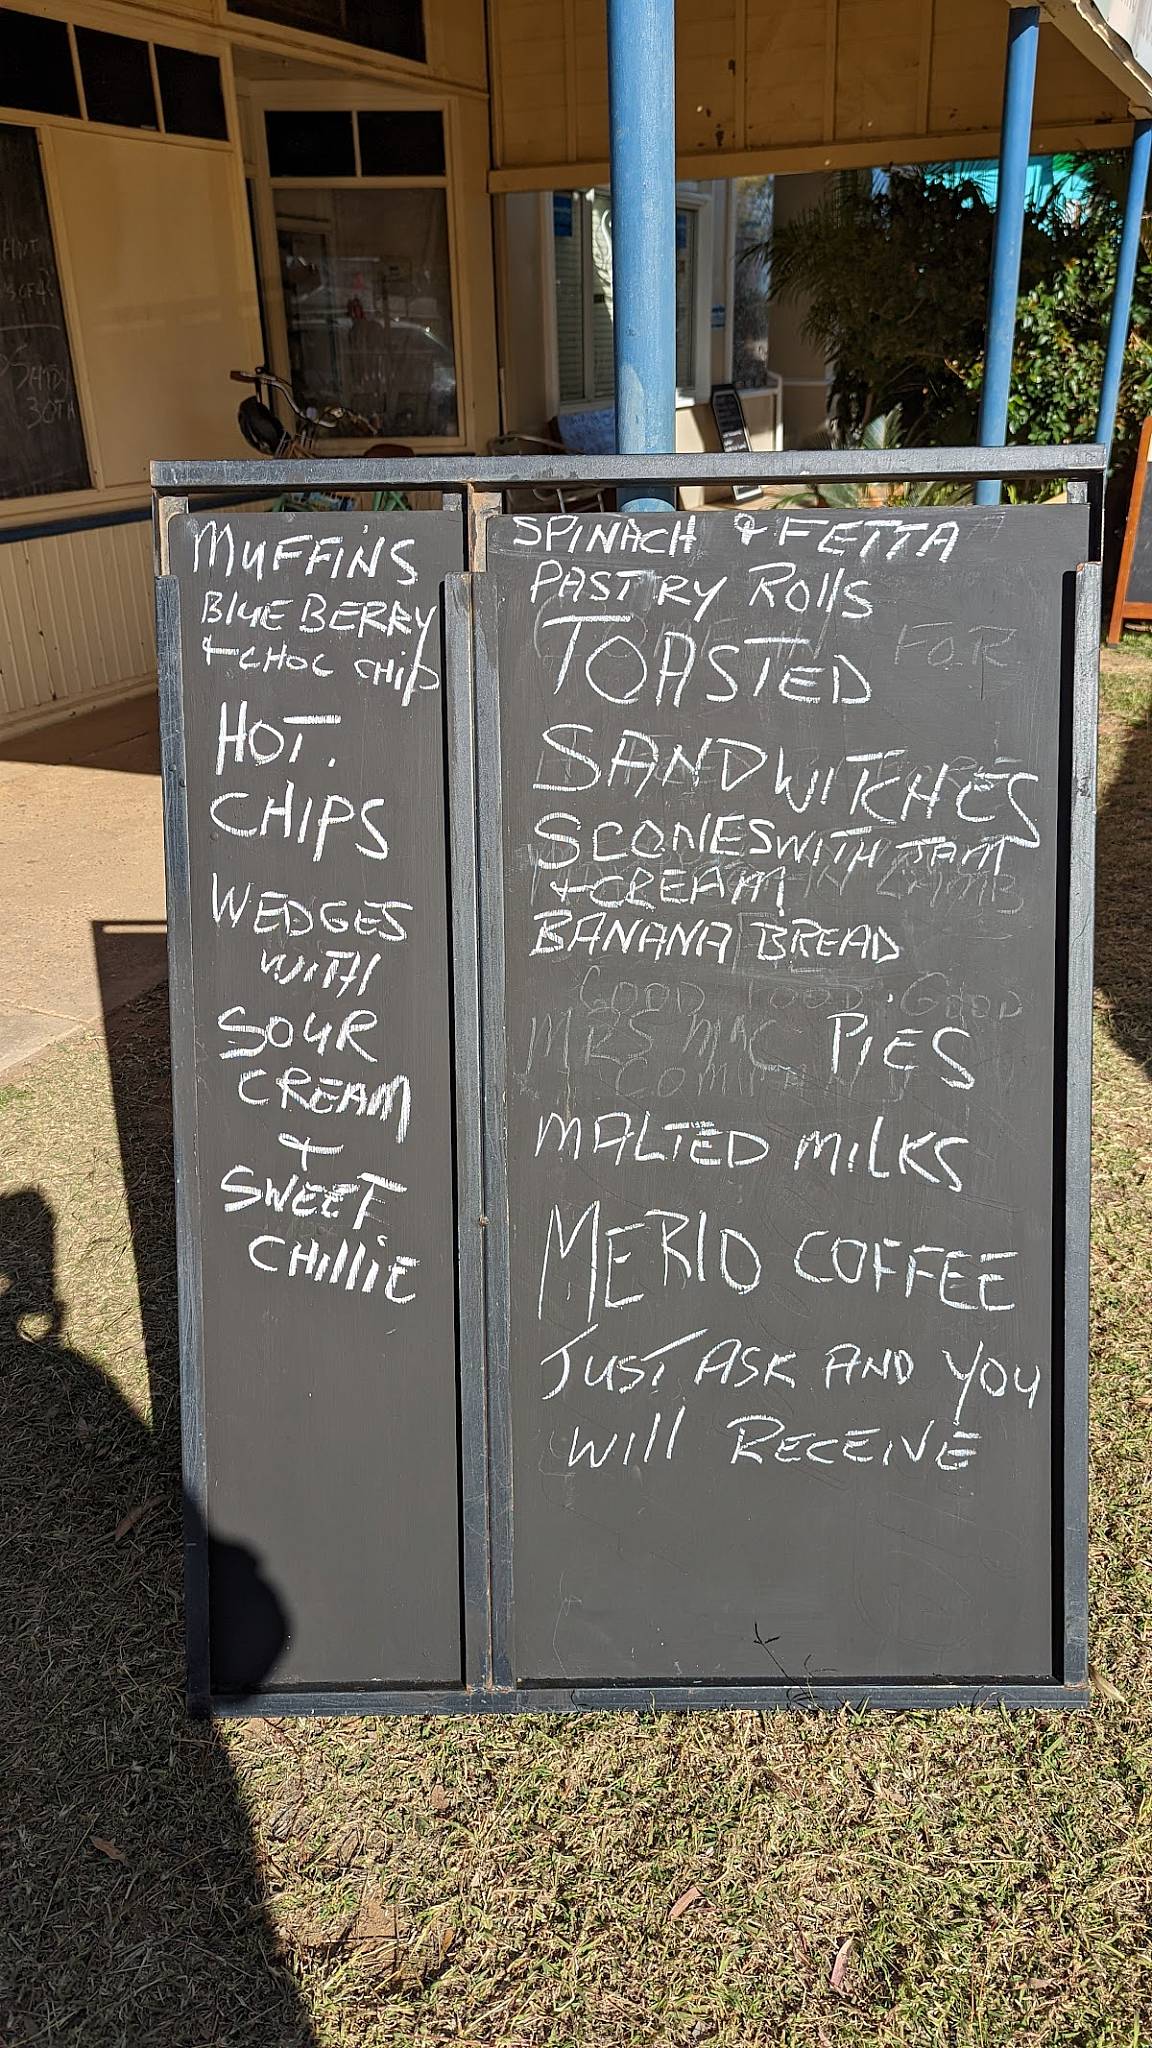 MUFFiNS
BlUE BERRY
+ CHOC CHiP
HOT.
CHIPS
WEDGES
WiTH
SOUR
CREAM
+
SWEET
CHilliE
SPINACH & FETTA
PASTRY ROllS
TOASTED
FOR
SANDWITCHES
SCONES WITH JAM
+ CREAM
BANANA BREAD
GOOD FOOD. GOOD
MRS MAC PiES
COMPANY
MALTED MiLKS
MERLO COFFEE
JUST ASK AND YOU
Will RECEIVE